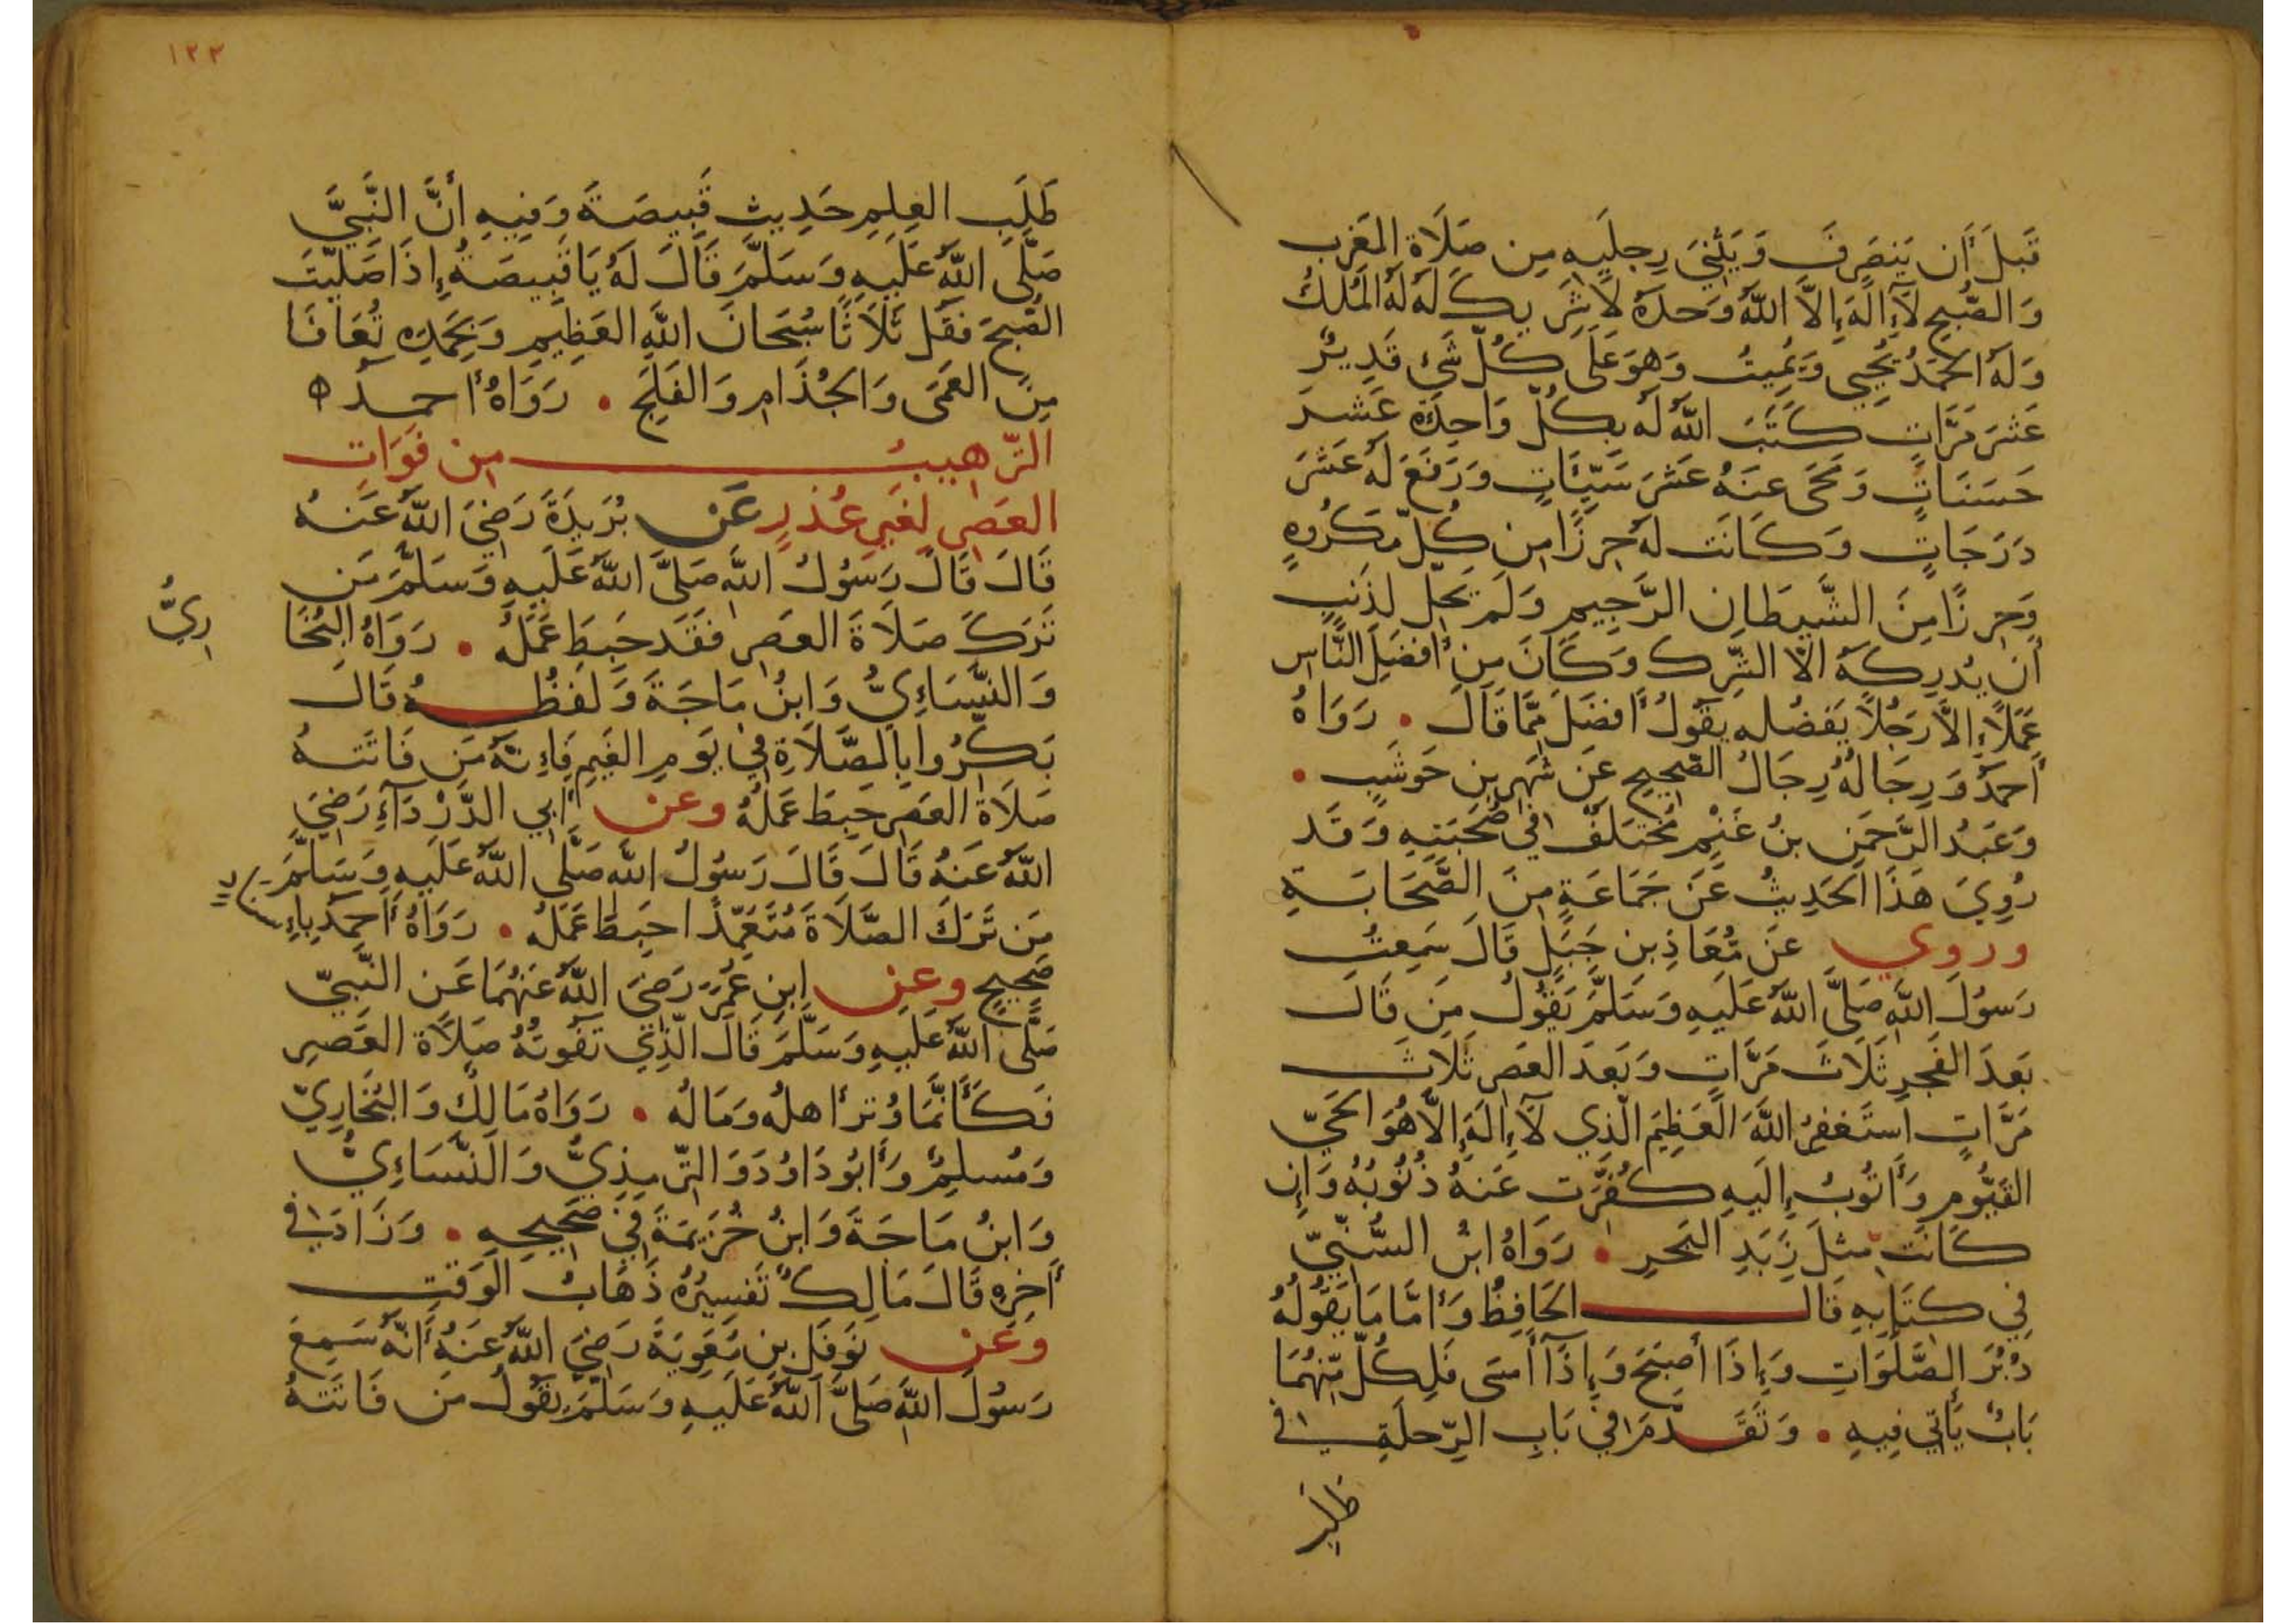 قَبلَ أَن يَنصَرِفَ وَيَثنِيَ رِجلَيهِ مِن صَلَاةِ المَغرِب
وَالصُّبحِ لَآ إِلَهَ إِلاَّ اللَّهُ وَحدَهُ لَا شَرِيكَ لَهُ لَهُ المُلكُ
وَلَهُ الحَمدُ يُحيِي وَيُمِيتُ وَهُوَ عَلَى كُلِّ شَيءٍ قَدِيرٌ
عَشرَ مَرَّاتٍ كَتَبَ اللَّهُ لَهُ بِكُلِّ وَاحِدَةٍ عَشرَ
حَسَنَاتٍ وَمَحَى عَنهُ عَشرَ سَيِّئَاتٍ وَرَفَعَ لَهُ عَشرَ
دَرَجَاتٍ وَكَانَت لَهُ حِرزًا مِن كُلِّ مَكرُوهٍ
وَحِرزًا مِنَ الشَّيطَانِ الرَّجِيمِ وَلَم يَحِلّ لِذَنبٍ
أَن يُدرِكَهُ الاَّ الشِّرك وَكَانَ مِن أَفضَلِ النَّاسِ
عَمَلاً إِلاَّ رَجُلاً يَفضُله يَقُولُ أَفضَلَ مِمَّا قَالَ . رَوَاهُ
أَحمَدُ وَرِجَالُهُ رِجَالُ الصَّحِيحِ عَن شَهرِ بنِ حَوشَبٍ .
وَعَبدُ الرَّحمَنِ بنُ غَنْمٍ مُختَلَفٌ فِي صُحبَتِهِ وَقَد
رُوِيَ هَذَا الحَدِيثُ عَن جَمَاعَةٍ مِنَ الصَّحَابَةِ
وروي عَن مُعَاذِ بنِ جَبَلٍ قَالَ سَمِعتُ
رَسُولَ اللَّهِ صَلَّى اللَّهُ عَلَيهِ وَسَلَّمَ يَقُولُ مَن قَالَ
بَعدَ الفَجرِ ثَلَاثَ مَرَّاتٍ وَبَعدَ العَصرِ ثَلَاثَ
مَرَّاتٍ أَستَغفِرُ اللَّهَ العَظِيمَ الَّذِي لَآ إِلَهَ إِلاَّ هُوَ الحَيّ
القَيُّوم وَأَتُوبُ إِلَيهِ كُفِّرَت عَنهُ ذُنُوبُهُ وَإِن
كَانَت مِثلَ زَبَدِ البَحرِ . رَوَاهُ ابنُ السُّنِّيّ
فِي كِتَابِهِ قَالَ الحَافِظُ وَأَمَّا مَا يَقُولُهُ
دُبُرَ الصَّلَوَاتِ وَإِذَا أَصبَحَ وَإِذَآ أَمسَى فَلِكُلٍّ مِّنهُمَا
بَابٌ يَأتِي فِيهِ . وَتَقَدَّمَ فِي بَابِ الرِّحلَةِ فِي
طلب
١٢٢
طَلَبِ العِلمِ حَدِيثِ قَبِيصَةَ وَفِيهِ أَنَّ النَّبِيَّ
صَلَّى اللَّهُ عَلَيهِ وَسَلَّمَ قَالَ لَهُ يَا قَبِيصَةُ إِذَا صَلَّيتَ
الصُّبحَ فَقُل ثَلَاثًا سُبحَانَ اللَّهِ العَظِيمِ وَبِحَمدِهِ تُعَافَا
مِنَ العَمَى وَالجُذَامِ وَالفَلَجِ . رَوَاهُ أَحمدُ ه
التّرهيبُ مِن فَوَاتِ
العَصرِ لِغَيرِ عُذرٍ عَن بُرَيدَةَ رَضِيَ اللَّهُ عَنهُ
قَالَ قَالَ رَسُولُ اللَّهِ صَلَّى اللَّهُ عَلَيهِ وَسَلَّمَ مَن
تَرَكَ صَلَاةَ العَصرِ فَقَد حَبِطَ عَمَلُهُ . رَوَاهُ البُخَا
رِيُّ
وَالنَّسَاءِيُّ وَابنُ مَاجَةَ وَلَفظُهُ قَالَ
بَكِّرُوا بِالصَّلَاةِ فِي يَومِ الغَيمِ فَإِنَّهُ مَن فَاتَتهُ
صَلَاةُ العَصرِ حَبِطَ عَمَلُهُ وعن أَبِي الدَّرْدَآءِ رَضِيَ
اللَّهُ عَنهُ قَالَ قَالَ رَسُولُ اللَّهِ صَلَّى اللَّهُ عَلَيهِ وَسَلَّمَ
مَن تَرَكَ الصَّلَاةَ مُتَعَمِّدًا حَبِطَ عَمَلُهُ . رَوَاهُ أَحمَدُ بِإِسناد
صَحِيحٍ وعن ابنِ عُمَرَ رَضِيَ اللَّهُ عَنهُمَا عَنِ النَّبِيِّ
صَلَّى اللَّهُ عَلَيهِ وَسَلَّمَ قَالَ الَّذِي تَفُوتُهُ صَلَاةُ العَصرِ
فَكَأَنَّمَا وُتِرَ أَهلُهُ وَمَالُهُ . رَوَاهُ مَالِكٌ وَالبُخَارِيّ
وَمُسلِمٌ وَأَبُو دَاوُدَ وَالتِّرمِذِيُّ وَالنَّسَاءِيُّ
وَابنُ مَاجَةَ وَابنُ خُزَيمَةَ فِي صَحِيحِهِ . وَزَادَ فِي
أَخِرِهِ قَالَ مَالِكٌ تَفسِيرُهُ ذَهَابُ الوَقتِ
وَعَن نَوفَلِ بنِ مُعَوِيَةَ رَضِيَ اللَّهُ عَنهُ أَنَّهُ سَمِعَ
رَسُولَ اللَّهِ صَلَّى اللَّهُ عَلَيهِ وَسَلَّمَ يَقُولُ مَن فَاتَتهُ